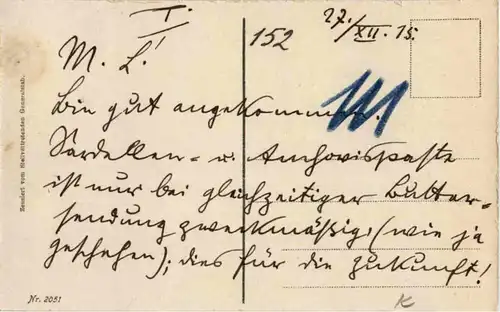 I.
152
27./XII. 15.
M. L.!
Bin gut angekommen.
Sardellen- u. Anchovispaste
ist nur bei gleichzeitiger Butter-
sendung zweckmäßig, (wie ja
geschehen); dies für die Zukunft!
Zensiert vom stellvertretenden Generalstab.
Nr. 2051
K